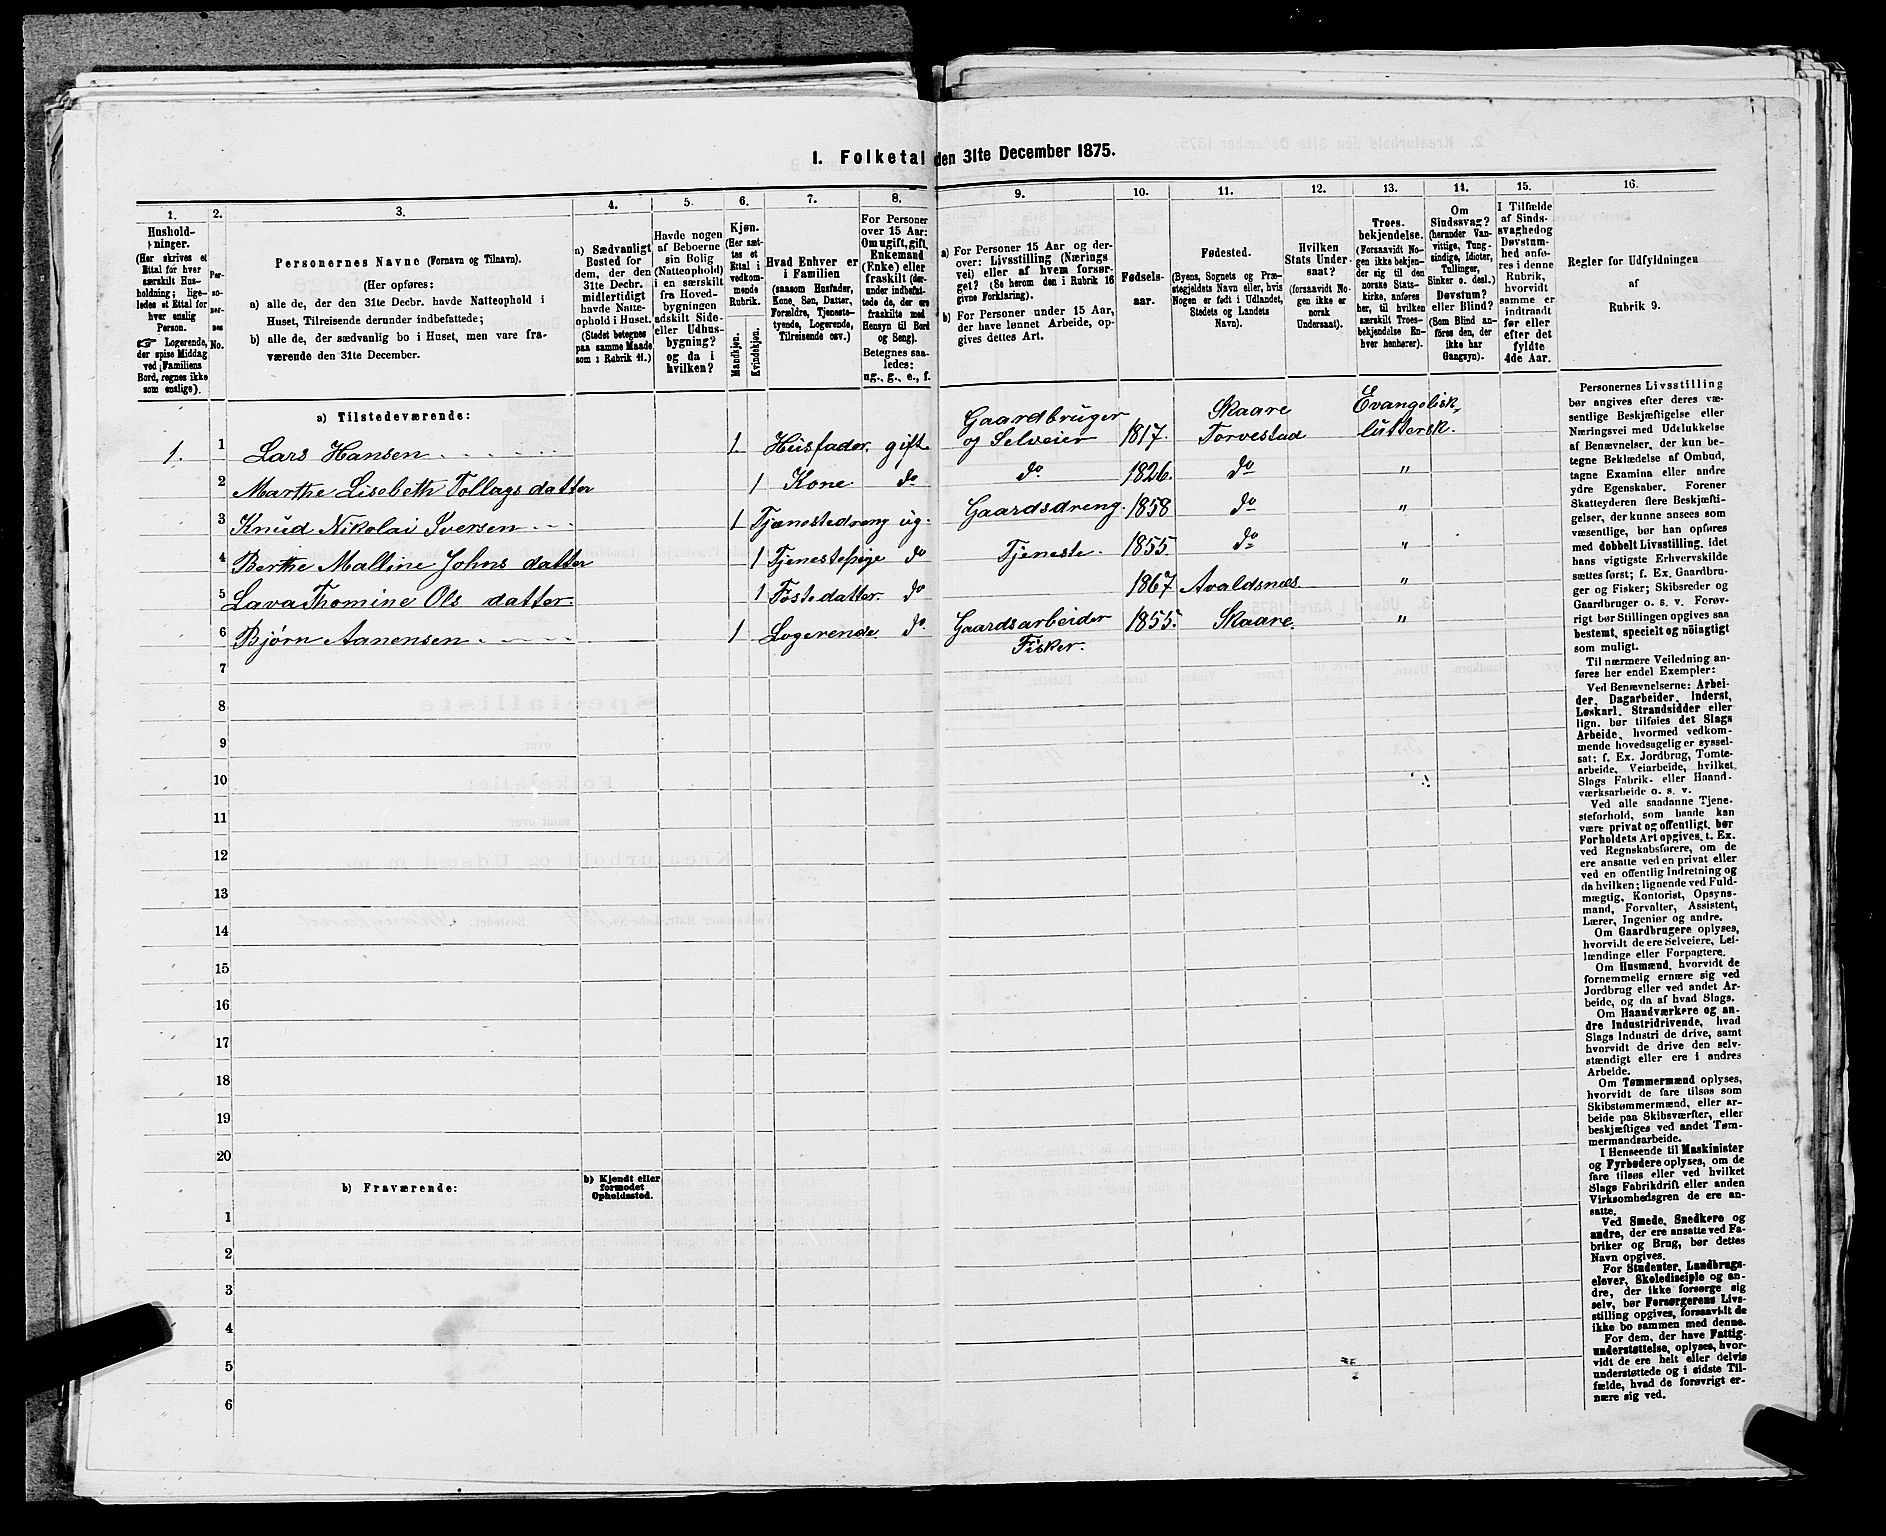 1. Folketal den 31te December 1875.
1. 2. 3. 4. 5. 6. 7. 8. 9. 10. 11. 12. 13. 14. 15. 16.
Hushold-
ninger.
(Her skrives et
Ettal for hver
særskilt Hus-
holdning; lige-
ledes et Ettal for
hver enslig
Person.
☞ Logerende,
der spise Middag
ved Familiens
Bord, regnes ikke
som enslige).
Per-
so-
ner-
nes
No.
Personernes Navne (Fornavn og Tilnavn).
(Her opføres:
a) alle de, der den 31te Decbr. havde Natteophold i
Huset, Tilreisende derunder indbefattede;
b) alle de, der sædvanlig bo i Huset, men vare fra-
værende den 31te December.
a) Sædvanligt
Bosted for
dem, der den
31te Decbr.
midlertidigt
havde Natte-
ophold i Huset.
(Stedet betegnes
paa samme Maade
som i Rubrik 11.)
Havde nogen
af Beboerne
sin Bolig
(Natteophold)
i en særskilt
fra Hoved-
bygningen
adskilt Side-
eller Udhus-
bygning?
og da i
hvilken?
Kjøn.
(Her sæt-
tes et
Ettal i
vedkom-
mende
Rubrik.
Mandkjøn.
Kvindekjøn.
Hvad Enhver er
i Familien
(saasom Husfader,
Kone, Søn, Datter,
Forældre, Tjeneste-
tyende, Logerende,
Tilreisende osv.)
For Personer
over 15 Aar:
Om ugift, gift,
Enkemand
(Enke) eller
fraskilt (der-
under indbefat-
tede de, der ere
fraskilte med
Hensyn til Bord
og Seng).
Betegnes saa-
ledes:
ug., g., e., f.
a) For Personer 15 Aar og der-
over: Livsstilling (Nærings
vei) eller af hvem forsør-
get? (Se herom den i Rubrik 16
givne Forklaring).
b) For Personer under 15 Aar,
der have lønnet Arbeide, op-
gives dettes Art.
Fødsels-
aar.
Fødested.
(Byens, Sognets og Præ-
stegjeldets Navn eller, hvis
Nogen er født i Udlandet,
Stedets og Landets
Navn).
Hvilken
Stats Under-
saat?
(forsaavidt No-
gen ikke er
norsk
Undersaat).
Troes-
bekjendelse.
(Forsaavidt No-
gen ikke bekjen-
der sig til den
norske Stats-
kirke, anføres
her, til hvilken
særskilt Troes-
bekjendelse En-
hver henhører).
Om
Sindssvag?
(herunder Van-
vittige, Tung-
sindige, Idioter,
Tullinger,
Sinker o. desl.)
Døvstum?
eller Blind?
(Som Blind an-
føres den, der
ikke har
Gangsyn).
I Tilfælde
af Sinds-
svaghed og
Døvstum-
hed anfø-
res i denne
Rubrik,
hvorvidt
samme er
indtraadt
før eller
efter det
fyldte
4de Aar.
Regler for Udfyldningen
af
Rubrik 9.
a) Tilstedeværende:
1. 1 Lars Hansen 1. Husfader. gift Gaardbruger og Selveier 1817. Skaare Torvestad Evangelisk-luttersk.
2 Marthe Lisebeth Tollagsdatter 1 Kone do do 1826. do "
3 Knud Nikolai Iversen 1 Tjænestedreng ug. Gaardsdreng. 1858 do "
4 Berthe Malline Johns datter 1 Tjenestepige do Tjeneste. 1855. do "
5 Lava Thomine Ols datter. 1 Fostedatter. do 1867 Avaldsnes "
6 Bjørn Aanensen 1 Logerende do. Gaardsarbeider Fisker. 1855. Skaare. "
7
8
9
10
11
12
13
14
15
16
17
18
19
20
b) Fraværende:
b) Kjendt eller
formodet
Opholdssted.
1
2
3
4
5
6
Personernes Livsstilling
bør angives efter deres væ-
sentlige Beskjæftigelse eller
Næringsvei med Udelukkelse
af Benævnelser, der kun be-
tegne Beklædelse af Ombud,
tagne Examina eller andre
ydre Egenskaber. Forener
Skatteyderen flere Beskjæfti-
gelser, der kunne ansees som
væsentlige, bør han opføres
med dobbelt Livsstilling, idet
hans vigtigste Erhvervskilde
sættes først; f. Ex. Gaardbru-
ger og Fisker; Skibsreder og
Gaardbruger o. s. v. Forøv-
rigt bør Stillingen opgives saa
bestemt, specielt og nøiagtigt
som muligt.
Til nærmere Veiledning an-
føres her endel Exempler:
Ved Benævnelserne: Arbei-
der, Dagarbeider, Inderst,
Løskarl, Strandsidder eller
lign. bør tilføies det Slags
Arbeide, hvormed vedkom-
mende hovedsagelig er syssel-
sat; f. Ex. Jordbrug, Tomte-
arbeide, Veiarbeide, hvilket
Slags Fabrik- eller Haand-
værksarbeide o. s. v.
Ved alle saadanne Tjene-
steforhold, som baade kan
være privat og offentligt, bør
Forholdets Art opgives, t. Ex.
ved Regnskabsførere, om de
ere ansatte ved en privat eller
ved en offentlig Indretning og
da hvilken; lignende ved Fuld-
mægtig, Kontorist, Opsyns-
mand, Forvalter, Assistent,
Lærer, Ingeniør og andre.
Om Gaardbrugere oplyses,
hvorvidt de ere Selveiere, Lei-
lændinge eller Forpagtere.
Om Husmænd, hvorvidt de
fornemmelig ernære sig ved
Jordbrug eller ved andet Ar-
beide, og da af hvad Slags.
Om Haandværkere og an-
dre Industridrivende, hvad
Slags Industri de drive, samt
hvorvidt de drive den selv-
stændigt eller ere i andres
Arbeide.
Om Tømmermænd oplyses,
hvorvidt de fare tilsøs som
Skibstømmermænd, eller ar-
beide paa Skibsværfter, eller
beskjæftiges ved andet Tøm-
mermandsarbeide.
I Henseende til Maskinister
og Fyrbødere oplyses, om de
fare tilsøs eller ved hvilket
Slags Fabrikdrift eller anden
Virksomhedsgren de ere an-
satte.
Ved Smede, Snedkere og
andre, der ere ansatte ved Fa-
briker og Brug, bør dettes
Navn opgives.
For Studenter, Landbrugs-
elever, Skoledisciple og an-
dre, der ikke forsørge sig
selv, bør Forsørgerens Livs-
stilling opgives, forsaavidt de
ikke bo sammen med denne.
For dem, der have Fattig-
understøttelse, oplyses, hvor-
vidt de ere helt eller delvis
understøttede og i sidste Til-
fælde, hvad de forøvrigt er-
nære sig ved.